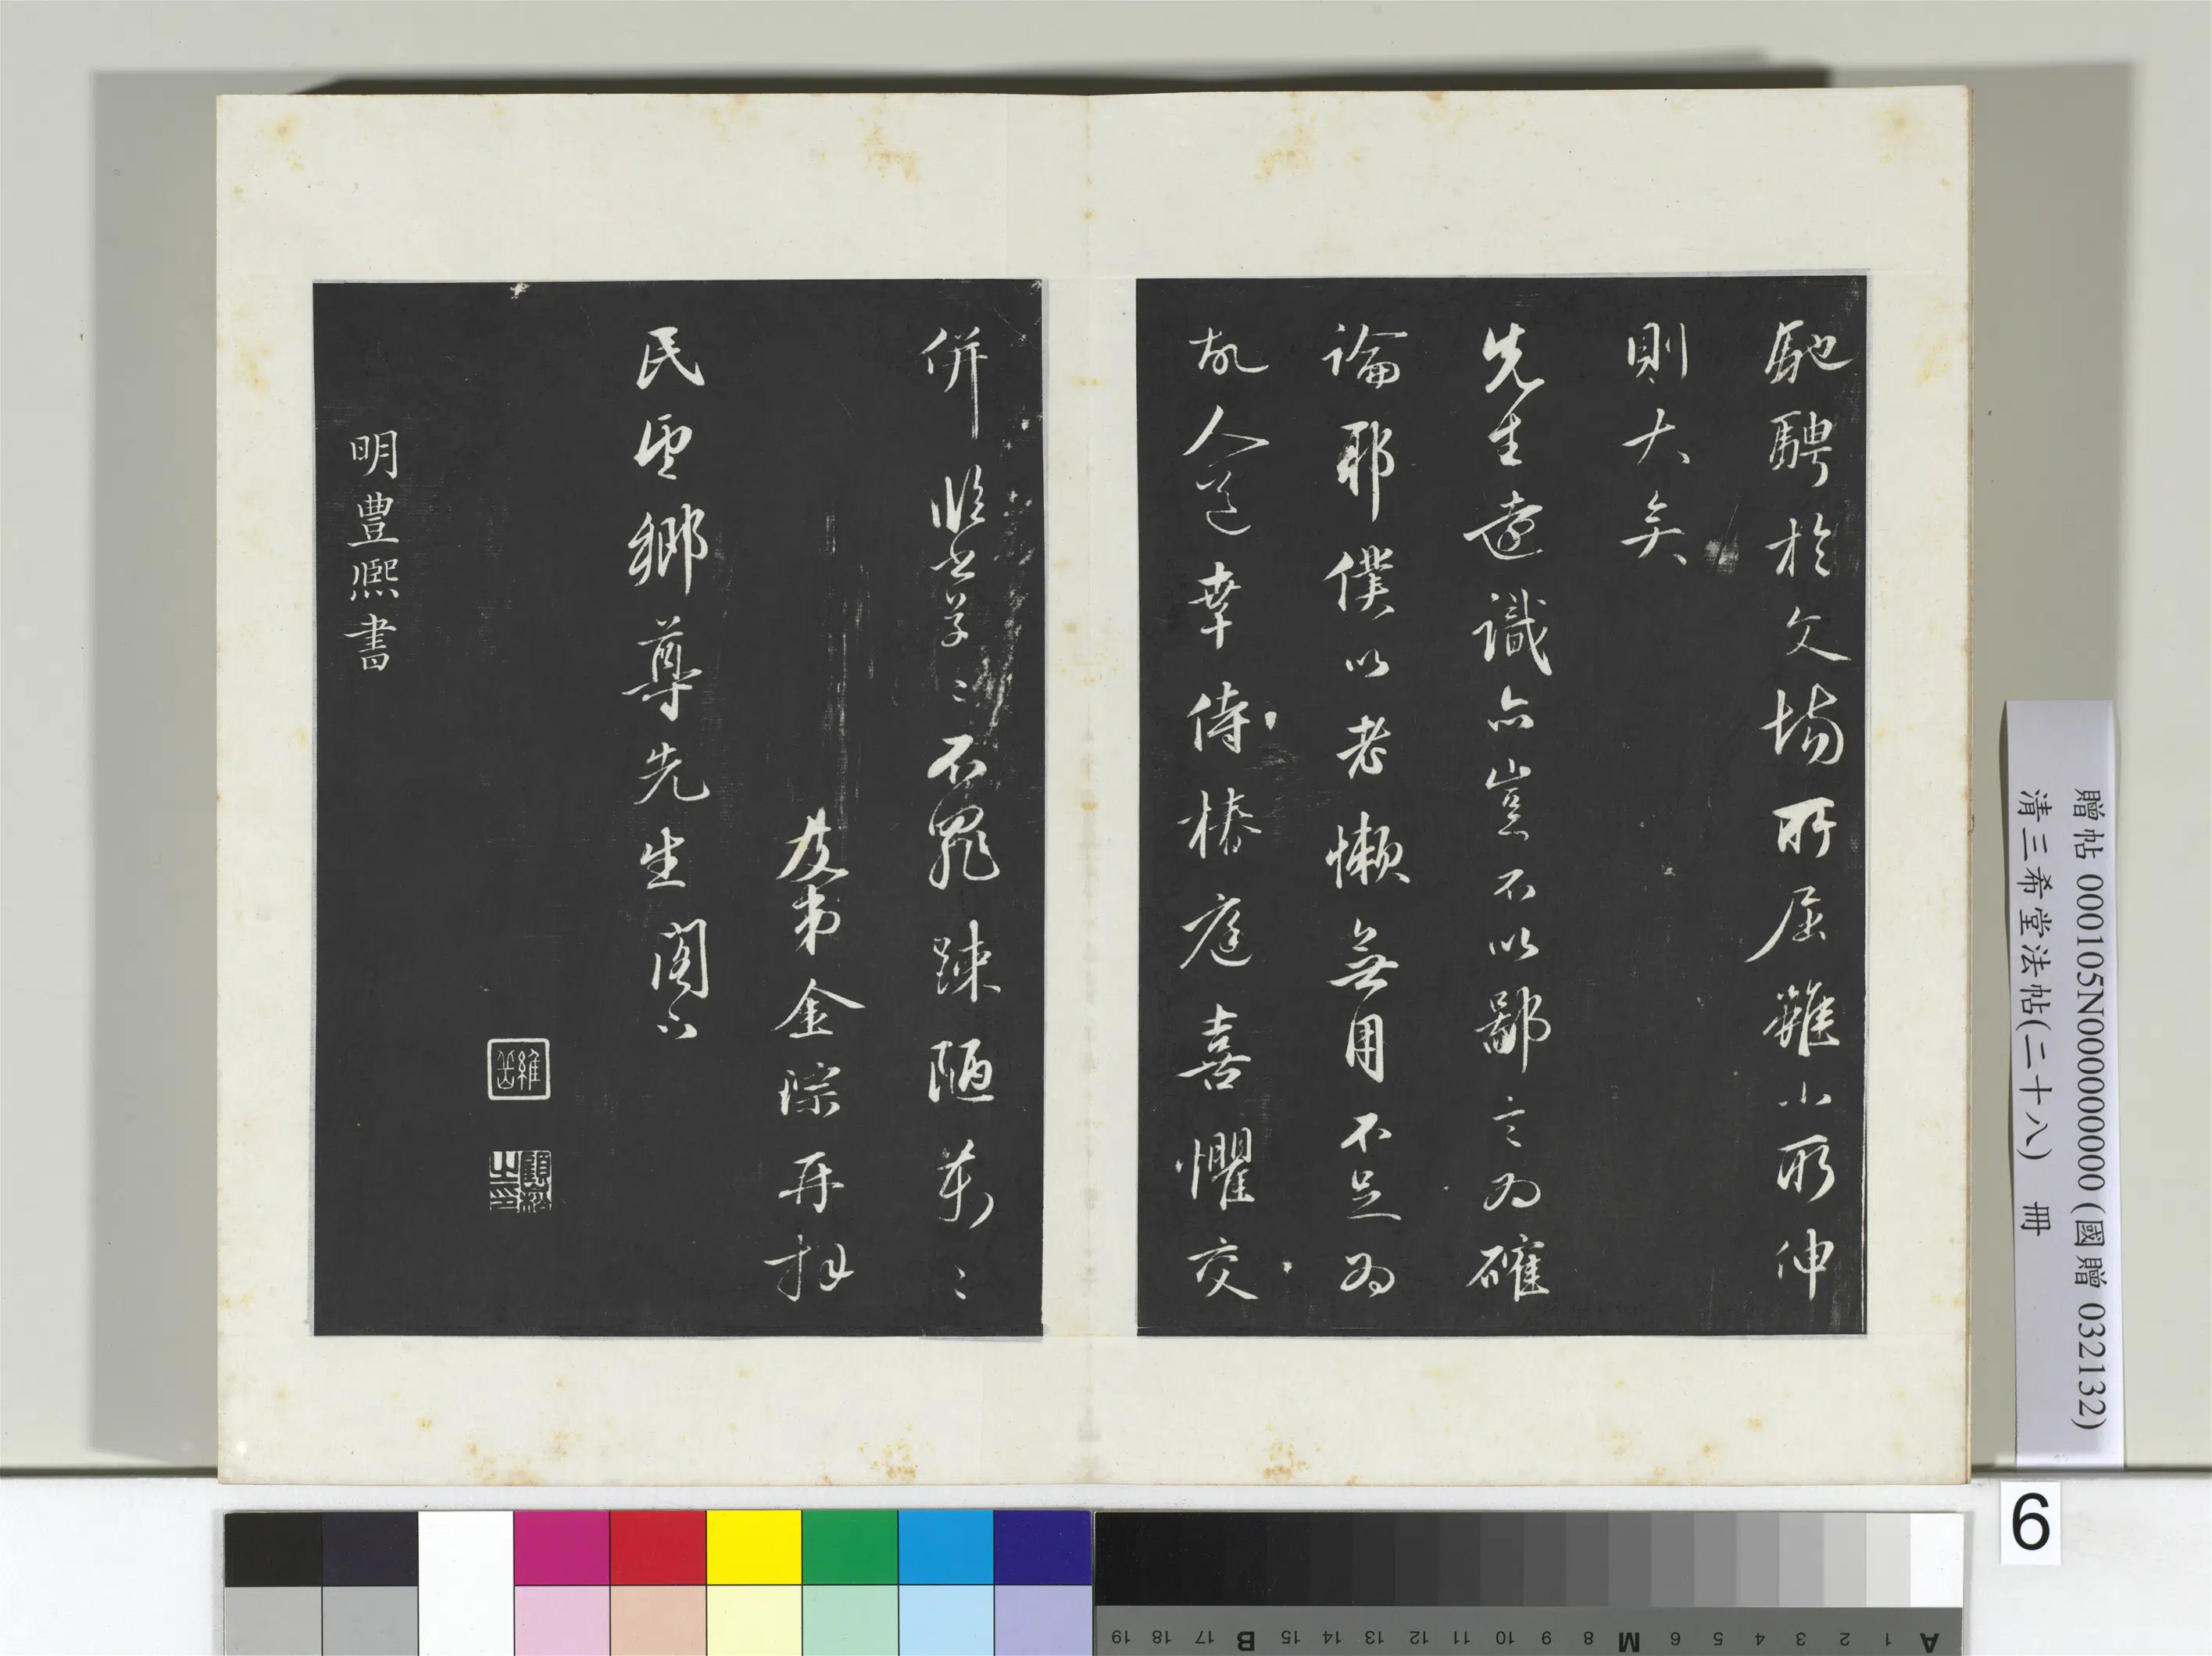 馳騁於文場所屈雖小所伸
則大矣
先生遠識亦豈不以鄙言為確
論耶僕以老懶無用不足為
故人道幸侍椿庭喜懼交
併臨書草〻不罪踈陋萬〻
友弟金琮再拜
民望鄉尊先生閣下
明豊熈書
贈帖 000105N000000000 (國贈 032132)
清三希堂法帖(二十八) 冊
6
A 1 2 3 4 5 6 M 8 9 10 11 12 13 14 15 B 17 18 19